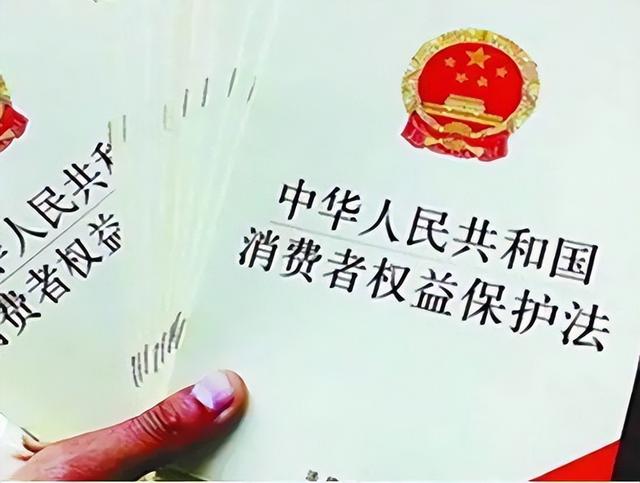 中华人民共和国
消费者权益保护法
华人民共和
费者权益